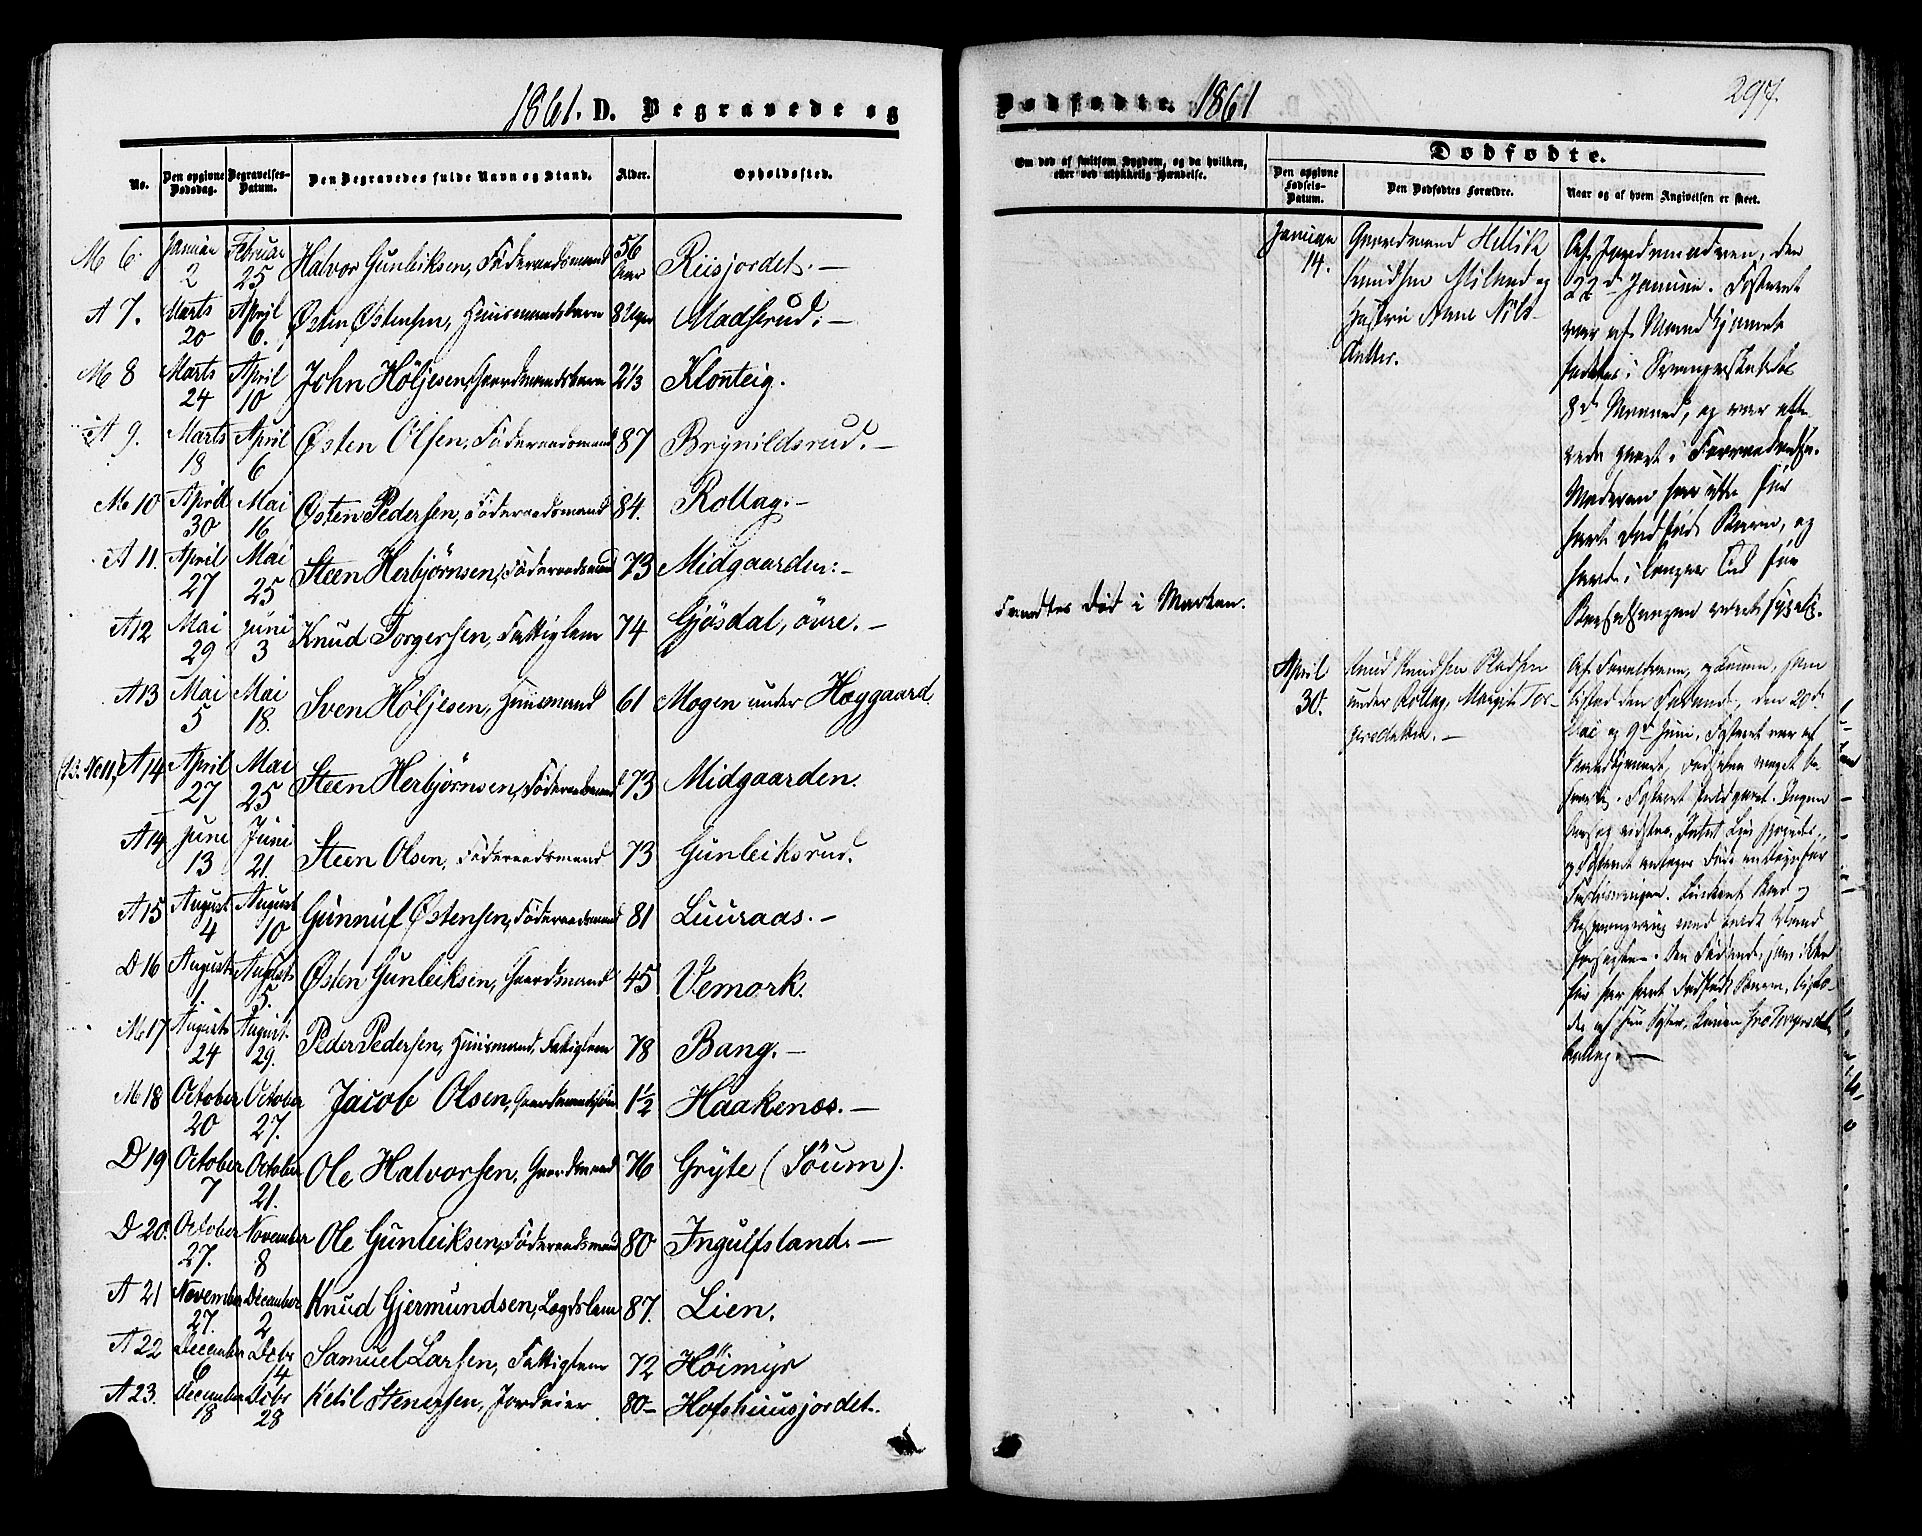 1861. D. Begravede og
No. Den opgivne Dødsdag. Begravelses-Datum. Den Begravedes fulde Navn og Stand. Alder. Opholdssted.
M 6. Januar 2 Februar 25 Halvor Gunleiksen, Föderaadsmand 56 Aar Riisjordet. —
A 7. Marts 20 April 6. Østen Østensen, Huusmandsbarn 8 Uger Madsrud. —
M 8 Marts 24 April 10 John Höljesen, Gaardmandsbarn 2 1/3 Klonteig.
A 9. Marts 18 April 6 Østen Olsen, Föderaadsmand 87 Brynildsrud. —
M 10 April 30 Mai 16 Østen Pedersen, Föderaadsmand 84. Rollag. —
A 11. April 27 Mai 25 Steen Herbjørnsen, Föderaadsmand 73 Midgaarden: —
A 12 Mai 29 Juni 3 Knud Torgersen, Fattiglem 74 Gjøsdal, øvre. —
A 13 Mai 5 Mai 18. Sven Höljesen, Huusmand 61 Mogen under Hæggaard
A 14 April 27 Mai 25 Steen Herbjørnsen, Föderaadsmand 73 Midgaarden.
A 14 Juni 13 Juni 21. Steen Olsen, Föderaadsmand 73 Gunleiksrud.
A 15 August 4 August 10 Gunnuf Østensen, Föderaadsmand 81 Luuraas. —
D 16 August 1. August 5. Østen Gunleiksen, Gaardmand 45 Vemork.
M 17 August 24 August 29. Peder Pedersen, Huusmand, Fattiglem 78 Bang. —
M 18 October 20 October 27. Jacob Olsen, Gaardmandssøn 1 1/2 Haakenæs. —
D 19 October 7 October 21. Ole Halvorsen, Gaardmand 76 Gryte (Söum).
D 20. October 27. November 8 Ole Gunleiksen, Föderaadsmand 80 Ingulfsland. —
A 21 November 27. December 2 Knud Gjermundsen, Lægdslem 87. Lien.
A 22 December 6 Dcbr 14 Samuel Larsen, Fattiglem 72 Höimyr
A 23. December 18 Dcbr 28 Ketil Stenersen, Jordeier 80 — Hofshuusjordet.
Dødfødte. 1861
297.
Om død af smitsom Sygdom, og da hvilken, eller ved ulykkelig Hændelse.
Dødfødte.
Den opgivne Fødsels-Datum. Den Dødfødtes Forældre. Naar og af hvem Angivelsen er skeet.
Fandtes Död i Marken.
Januar 14.
Gaardmand Hellik
Knudsen Miland og
Hustru Anne Nils-
datter.
Af Jordmoderen, den
22d Januar. Fosteret
var af Mandkjønnet
i Svangerskabets
8de Maaned, og var alle-
rede gaaet i Forraadnelse.
Moderen har ikke før
havt dødfödt Barn, og
havde i længere Tid før
April 30.
Knud Knudsen Pladsen
under Rollag, Margit Tor-
gersdatter. —
Af Forældrene, og Konen, som
den 20de
Mai og 9de Juni, Fosteret var af
Fosteret fuldbaaret. Ingen
med koldt Vand